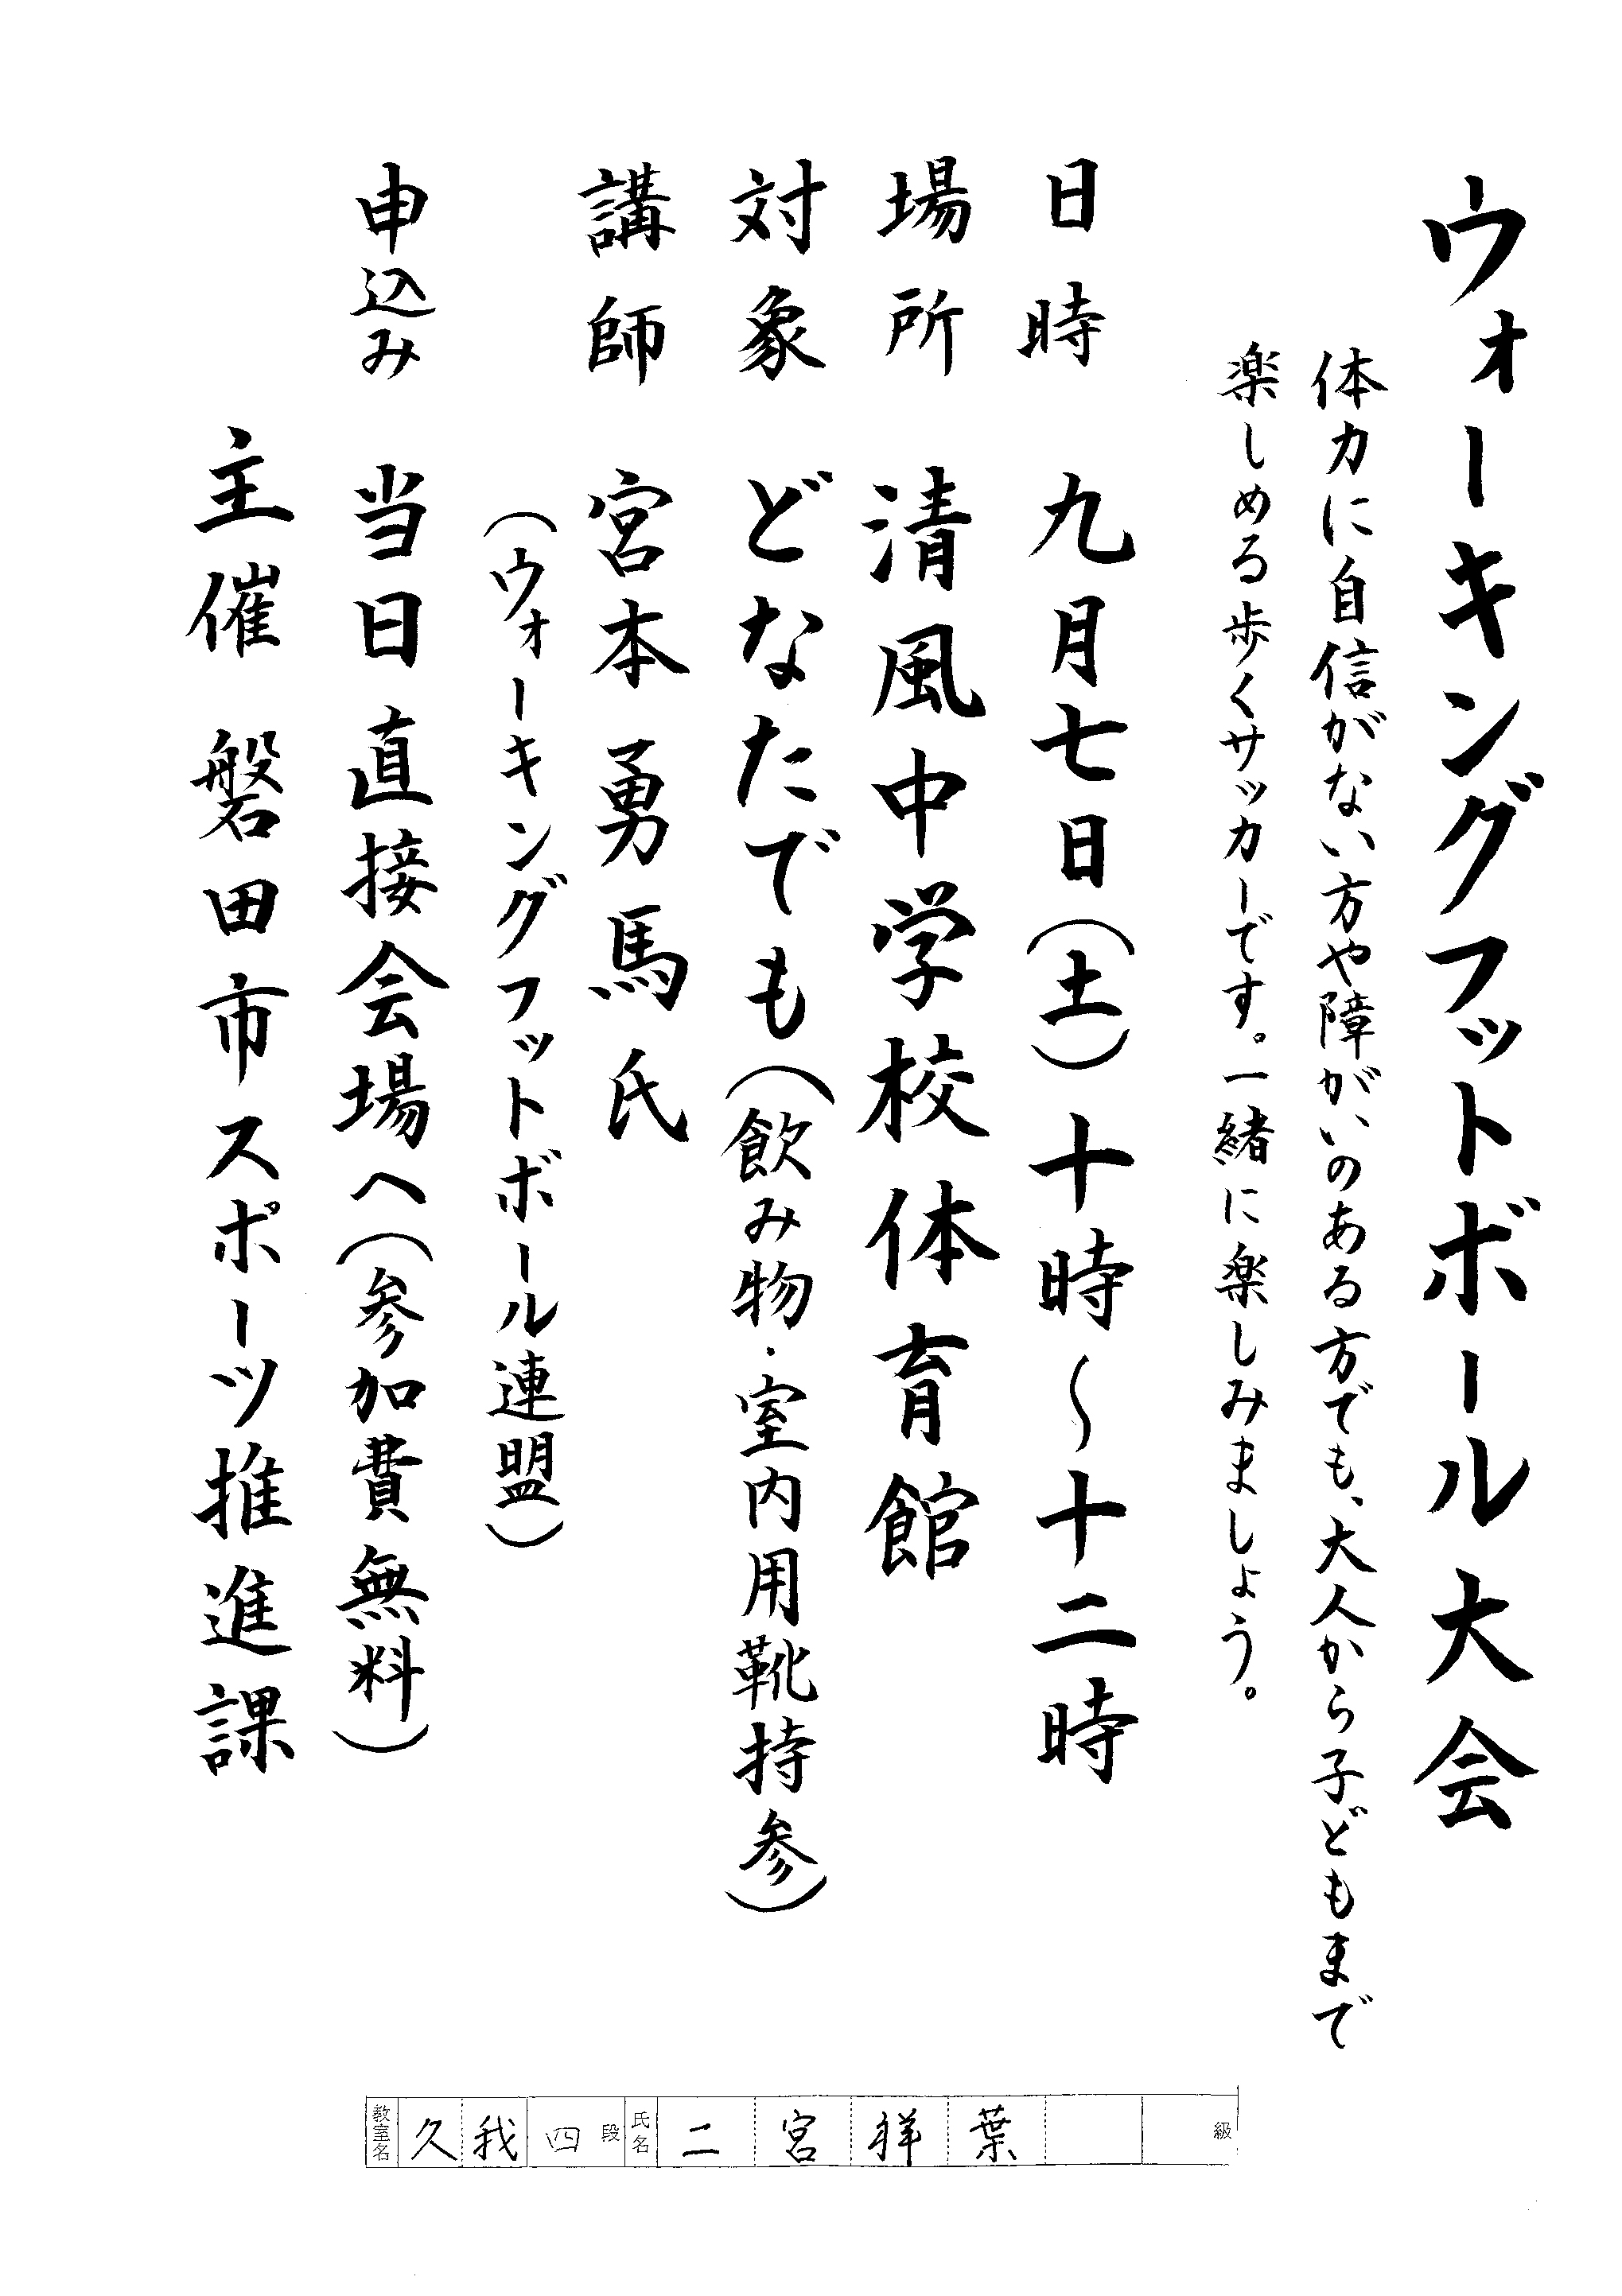 ウォーキングフットボール大会
体力に自信がない方や障がいのある方でも、大人から子どもまで
楽しめる歩くサッカーです。一緒に楽しみましょう。
日時 九月七日（土）十時～十二時
場所 清風中学校体育館
対象 どなたでも（飲み物・室内用靴持参）
講師 宮本勇馬氏
（ウォーキングフットボール連盟）
申込み 当日直接会場へ（参加費無料）
主催 磐田市スポーツ推進課
教室名 久我 四段 氏名 二宮祥葉 級